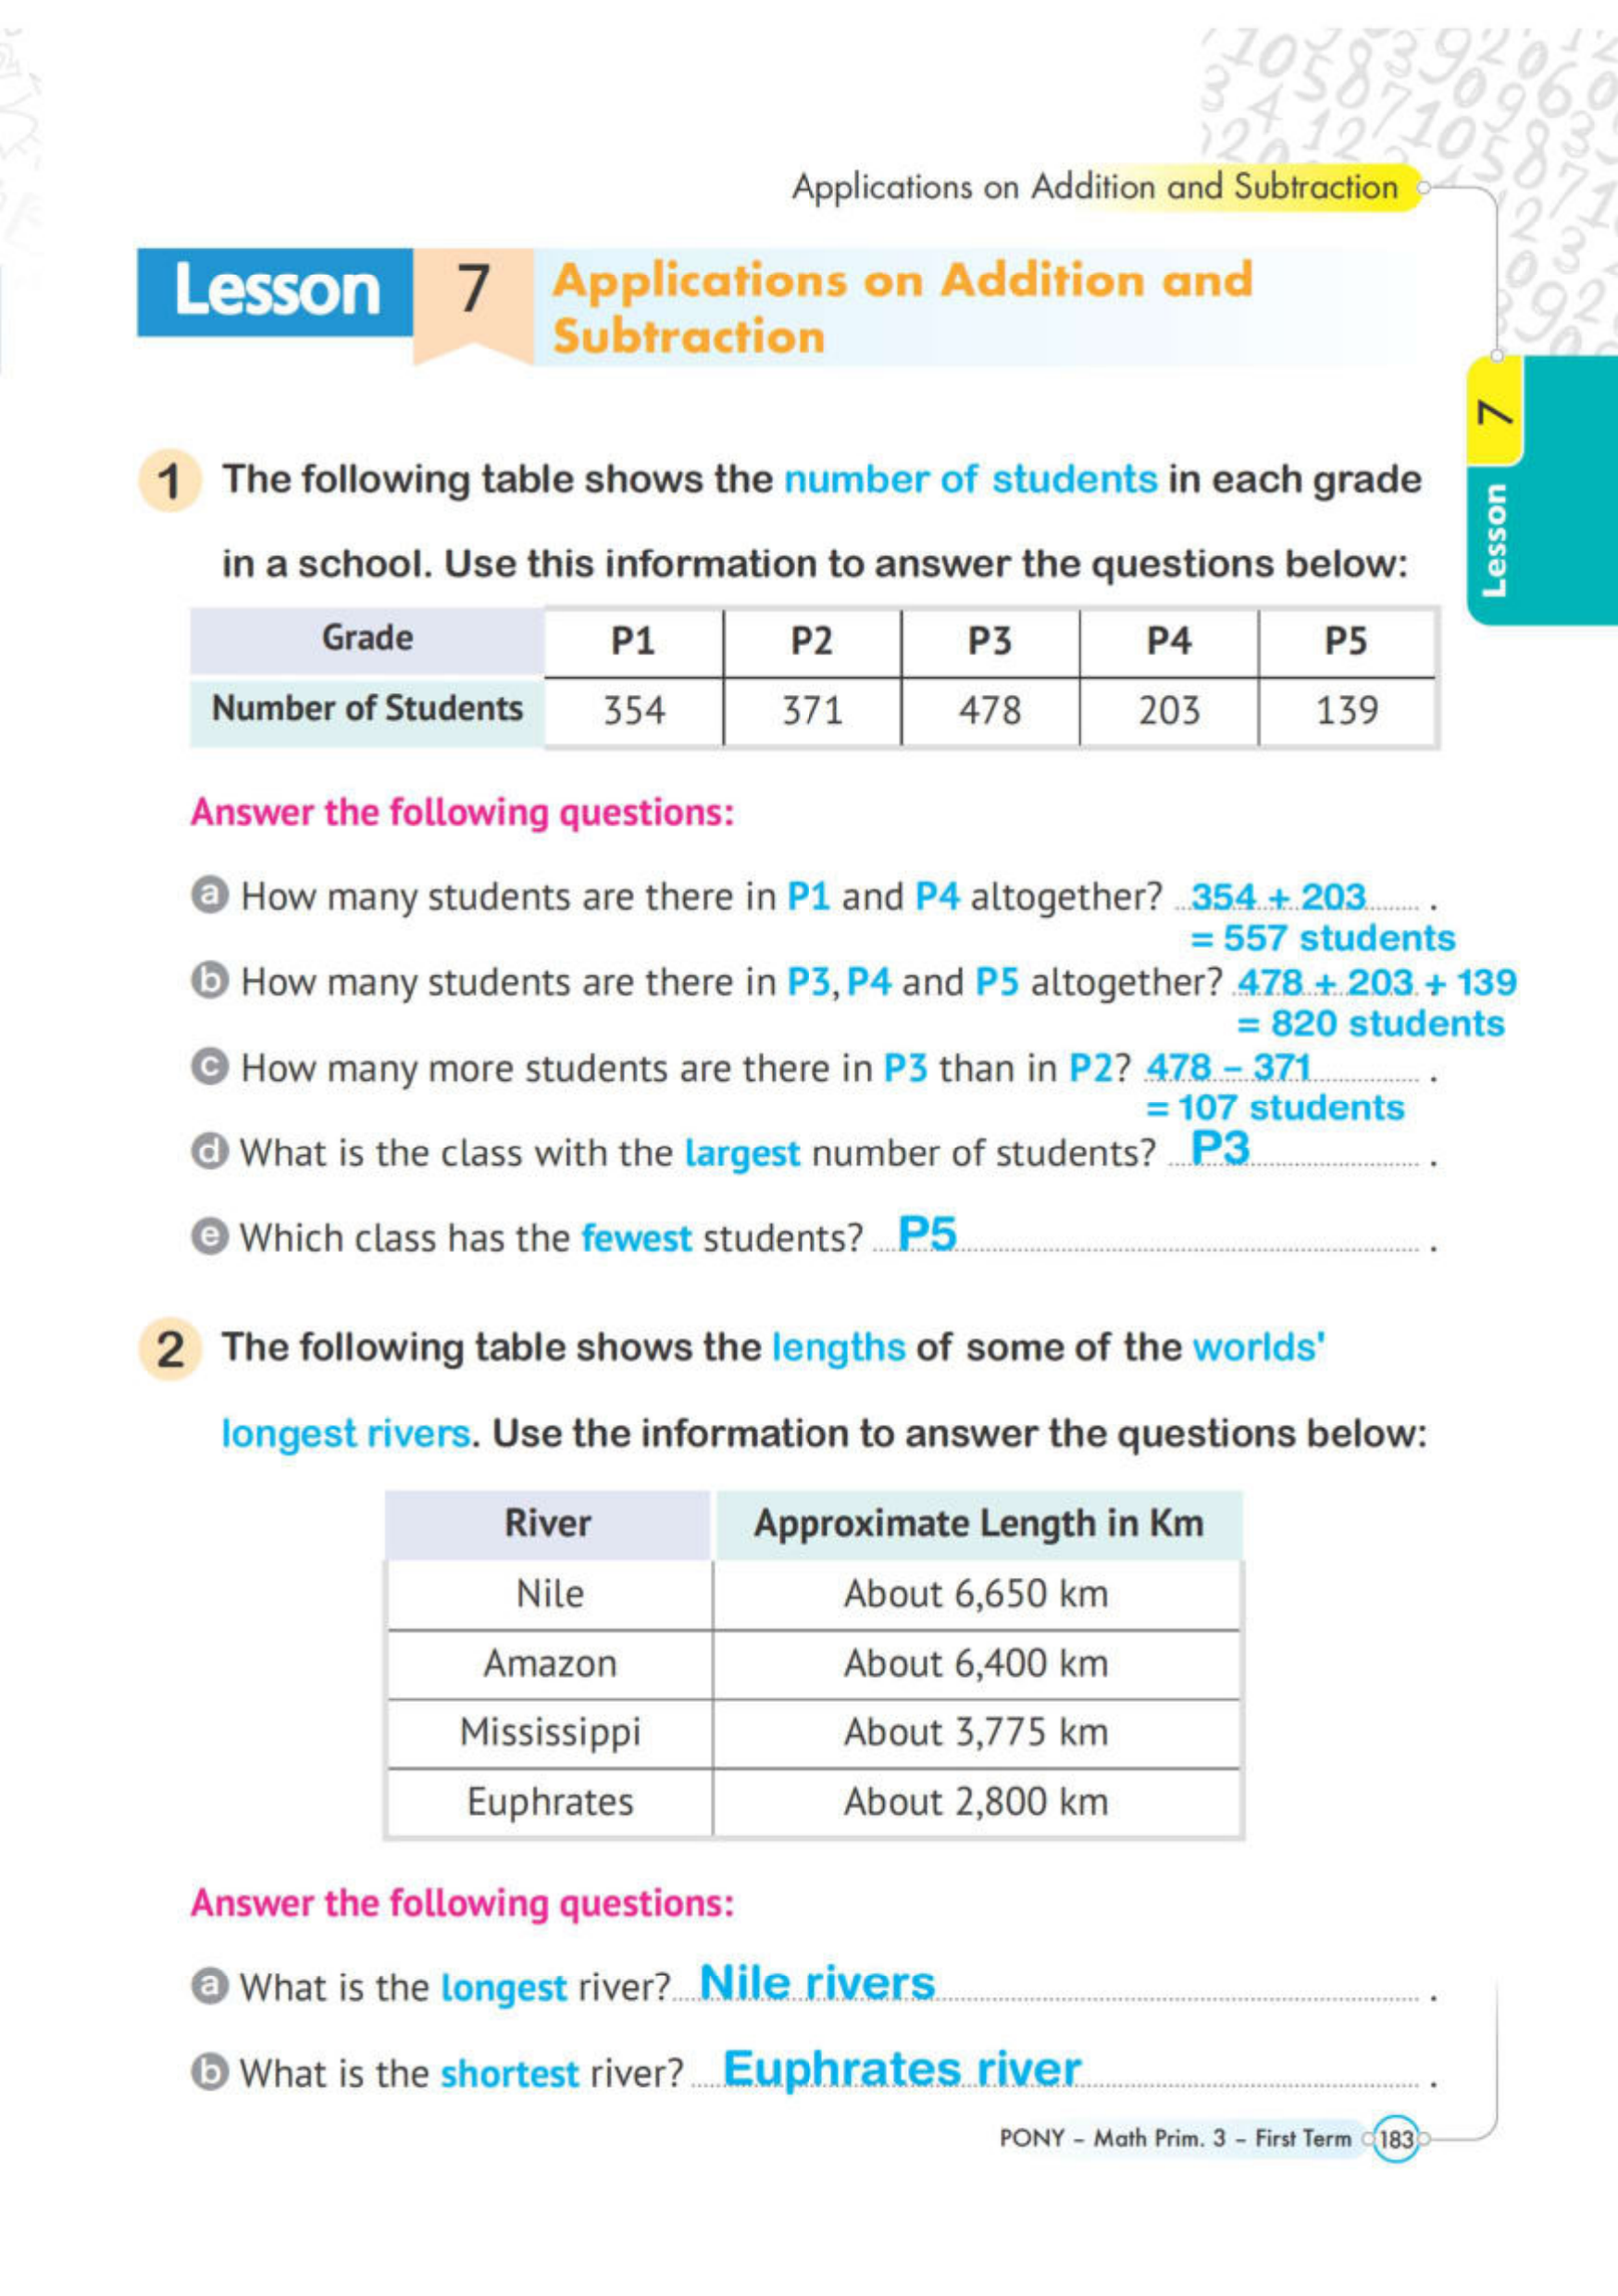 Applications on Addition and Subtraction
Lesson 7 Applications on Addition and
Subtraction
7
Lesson
1 The following table shows the number of students in each grade
in a school. Use this information to answer the questions below:
Grade P1 P2 P3 P4 P5
Number of Students 354 371 478 203 139
Answer the following questions:
a How many students are there in P1 and P4 altogether? 354 + 203 .
= 557 students
b How many students are there in P3, P4 and P5 altogether? 478 + 203 + 139
= 820 students
c How many more students are there in P3 than in P2? 478 – 371 .
= 107 students
d What is the class with the largest number of students? P3 .
e Which class has the fewest students? P5 .
2 The following table shows the lengths of some of the worlds'
longest rivers. Use the information to answer the questions below:
River Approximate Length in Km
Nile About 6,650 km
Amazon About 6,400 km
Mississippi About 3,775 km
Euphrates About 2,800 km
Answer the following questions:
a What is the longest river? Nile rivers .
b What is the shortest river? Euphrates river .
PONY – Math Prim. 3 – First Term 183